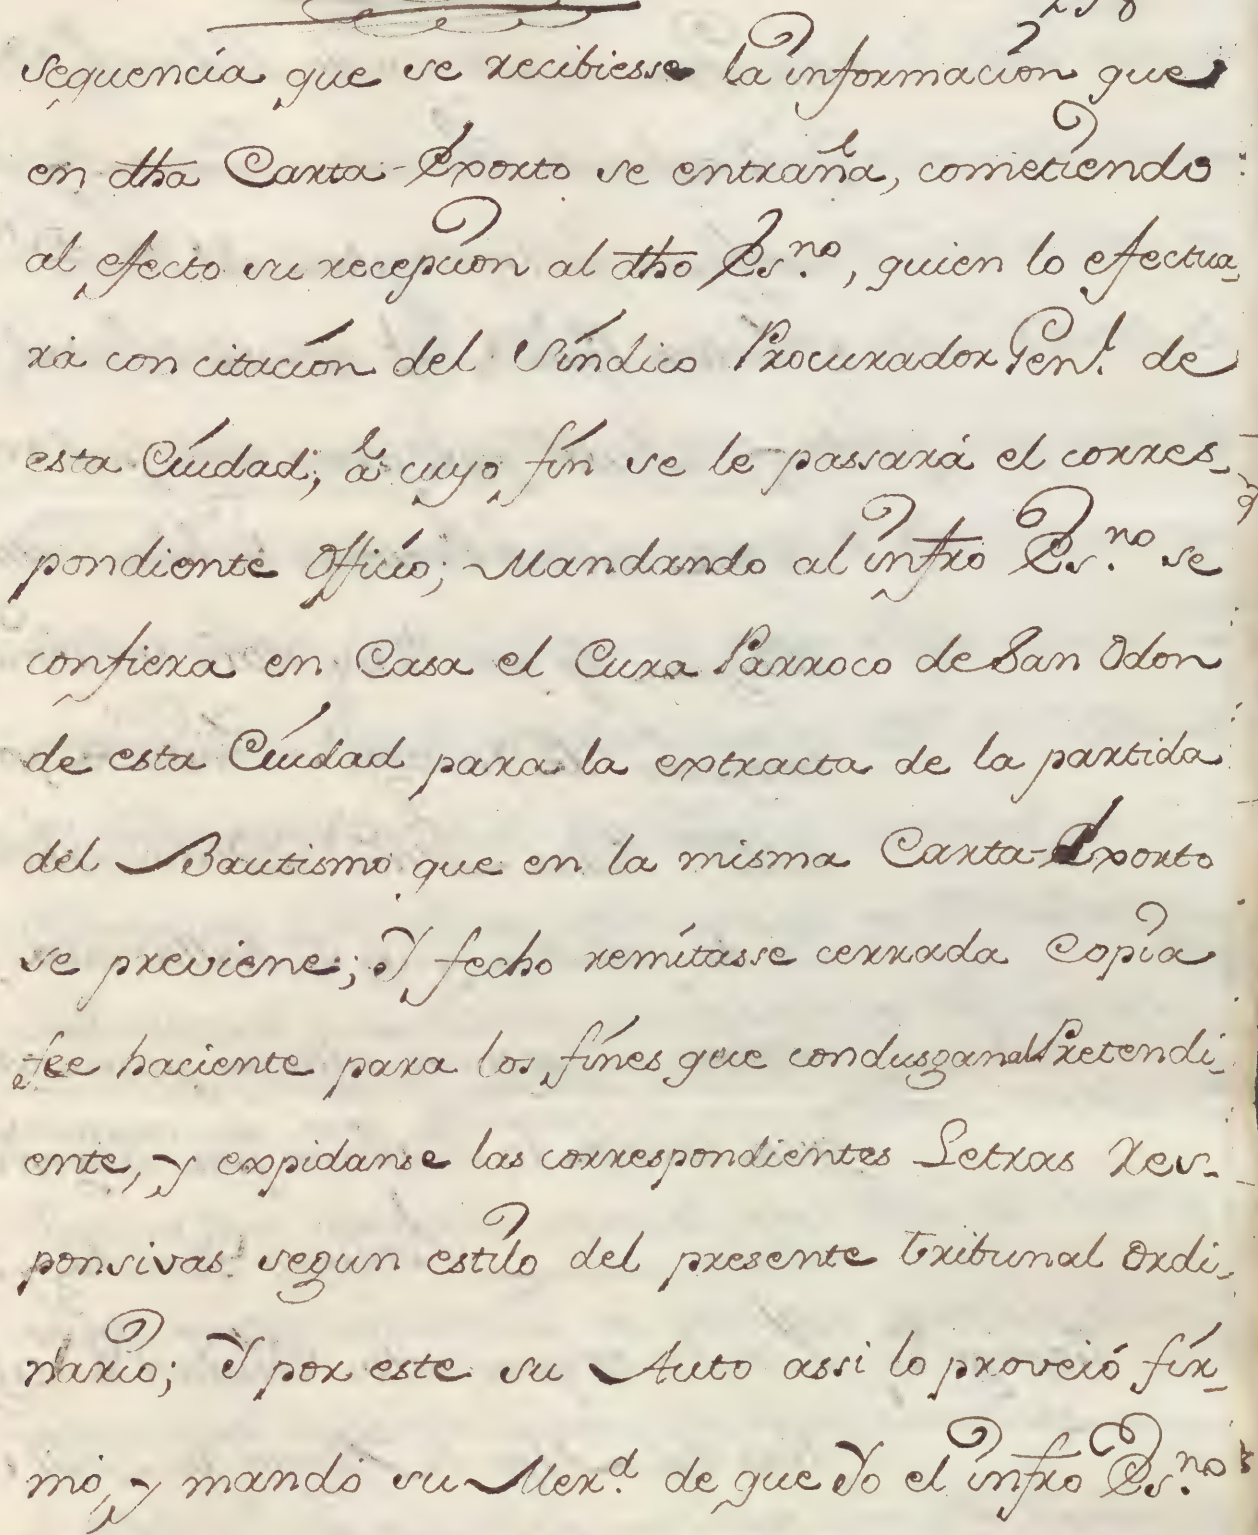 sequencia que se recibiesse la informacion que
en dha Carta-Exorto se entraña, cometiendo
al efecto su recepcion al dho Es.no, quien lo efectua-
rá con citación del Síndico Procurador Gen.l de
esta Ciudad; à cuyo fín se le passará el corres-
pondiente Officio; Mandando al infro Es.no se
confiera en Casa el Cura Parroco de San Odon
de esta Ciudad para la extracta de la partida
del Bautismo que en la misma Carta-Exorto
se previene; Y fecho remítasse cerrada Copia
fee haciente para los fínes que condusgan al Pretendi-
ente, y expidanse las correspondientes Letras Res-
ponsivas segun estilo del presente tribunal Ordi-
nario; Y por este su Auto assi lo proveió fír-
mó, y mandó su Mer.d de que Yo el infro Es.no